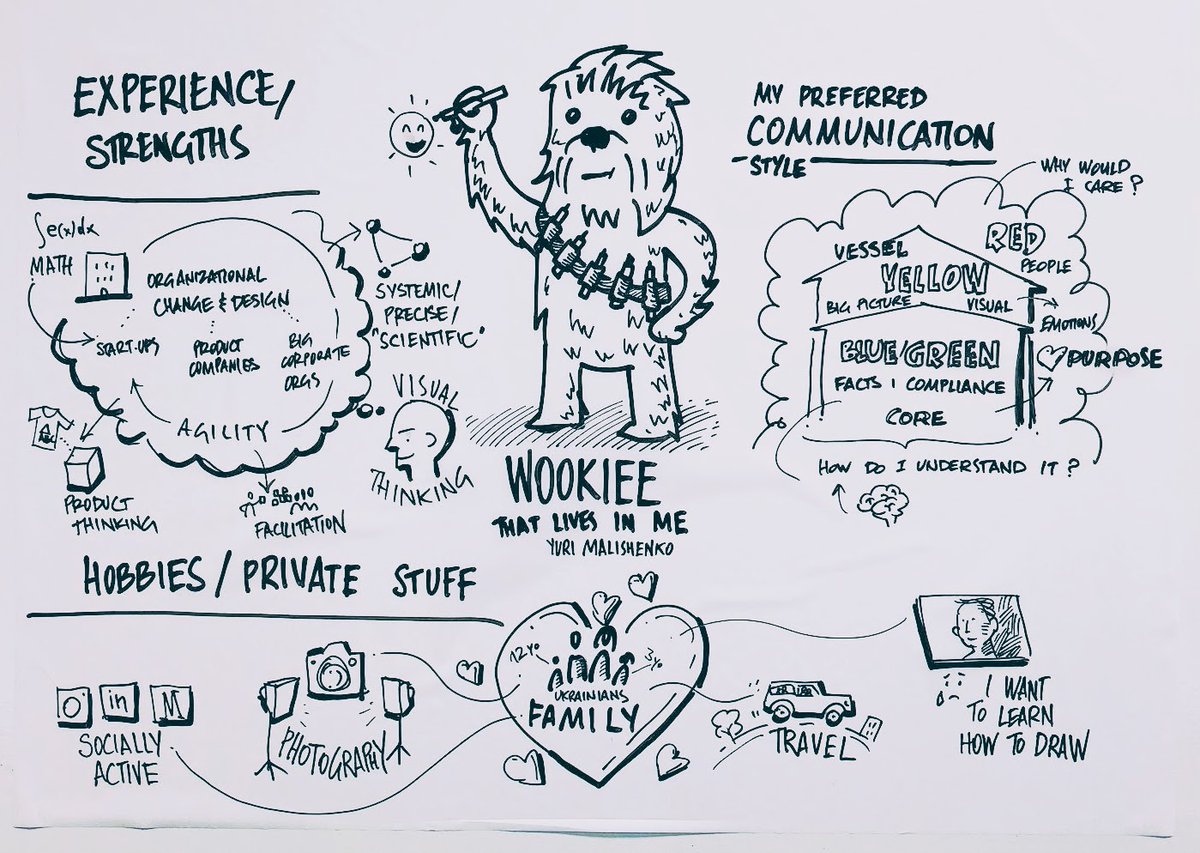 EXPERIENCE/
STRENGTHS
∫e(x)dx
MATH
ORGANIZATIONAL
CHANGE & DESIGN
START-UPS
PRODUCT
COMPANIES
BIG
CORPORATE
ORGS
AGILITY
SYSTEMIC/
PRECISE/
"SCIENTIFIC"
VISUAL
THINKING
ABC
PRODUCT
THINKING
FACILITATION
WOOKIEE
THAT LIVES IN ME
YURI MALISHENKO
MY PREFERRED
COMMUNICATION
STYLE
WHY WOULD
I CARE?
VESSEL
RED
PEOPLE
YELLOW
BIG PICTURE VISUAL
EMOTIONS
BLUE/GREEN
PURPOSE
FACTS | COMPLIANCE
CORE
HOW DO I UNDERSTAND IT?
HOBBIES/PRIVATE STUFF
in M
SOCIALLY
ACTIVE
PHOTOGRAPHY
12 YO
3 YO
UKRAINIANS
FAMILY
TRAVEL
I WANT
TO LEARN
HOW TO DRAW